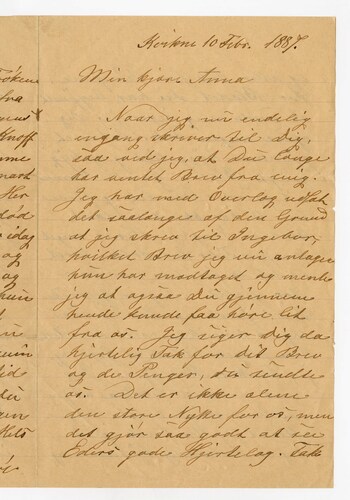 Kvikne 10 Febr. 1887.
Min kjære Anna
Naar jeg nu endelig
engang skriver til Dig,
saa ved jeg, at Du længe
har ventet Brev fra mig.
Jeg har med Overlæg udsat
det saalænge af den Grund
at jeg skrev til Ingebor,
hvilket Brev jeg nu antager
hun har modtaget og mente
jeg at ogsaa Du gjennem
hende kunde faa høre lit
fra os. Jeg siger Dig da
hjertelig Tak for dit Brev
og de Penger, du sendte
os. Det er ikke alene
den store Nytte for os, men
det gjør saa godt at see
Eders gode Hjertelag. Tak
fra
Knoff
Her
idag
og
og